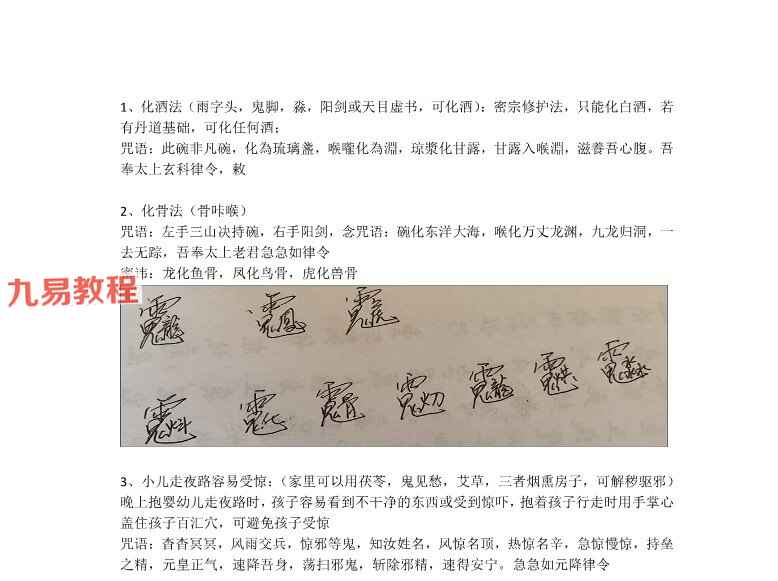 1、化酒法（雨字头，鬼脚，淼，阳剑或天目虚书，可化酒）：密宗修护法，只能化白酒，若
有丹道基础，可化任何酒；
咒语：此碗非凡碗，化為琉璃盞，喉嚨化為淵，琼漿化甘露，甘露入喉淵，滋養吾心腹。吾
奉太上玄科律令，敕
2、化骨法（骨咔喉）
咒语：左手三山决持碗，右手阳剑，念咒语：碗化东洋大海，喉化万丈龙渊，九龙归洞，一
去无踪，吾奉太上老君急急如律令
密讳：龙化鱼骨，凤化鸟骨，虎化兽骨
九易教程
3、小儿走夜路容易受惊：（家里可以用茯苓，鬼见愁，艾草，三者烟熏房子，可解秽驱邪）
晚上抱婴幼儿走夜路时，孩子容易看到不干净的东西或受到惊吓，抱着孩子行走时用手掌心
盖住孩子百汇穴，可避免孩子受惊
咒语：杳杳冥冥，风雨交兵，惊邪等鬼，知汝姓名，风惊名顶，热惊名辛，急惊慢惊，持垒
之精，元皇正气，速降吾身，荡扫邪鬼，斩除邪精，速得安宁。急急如元降律令